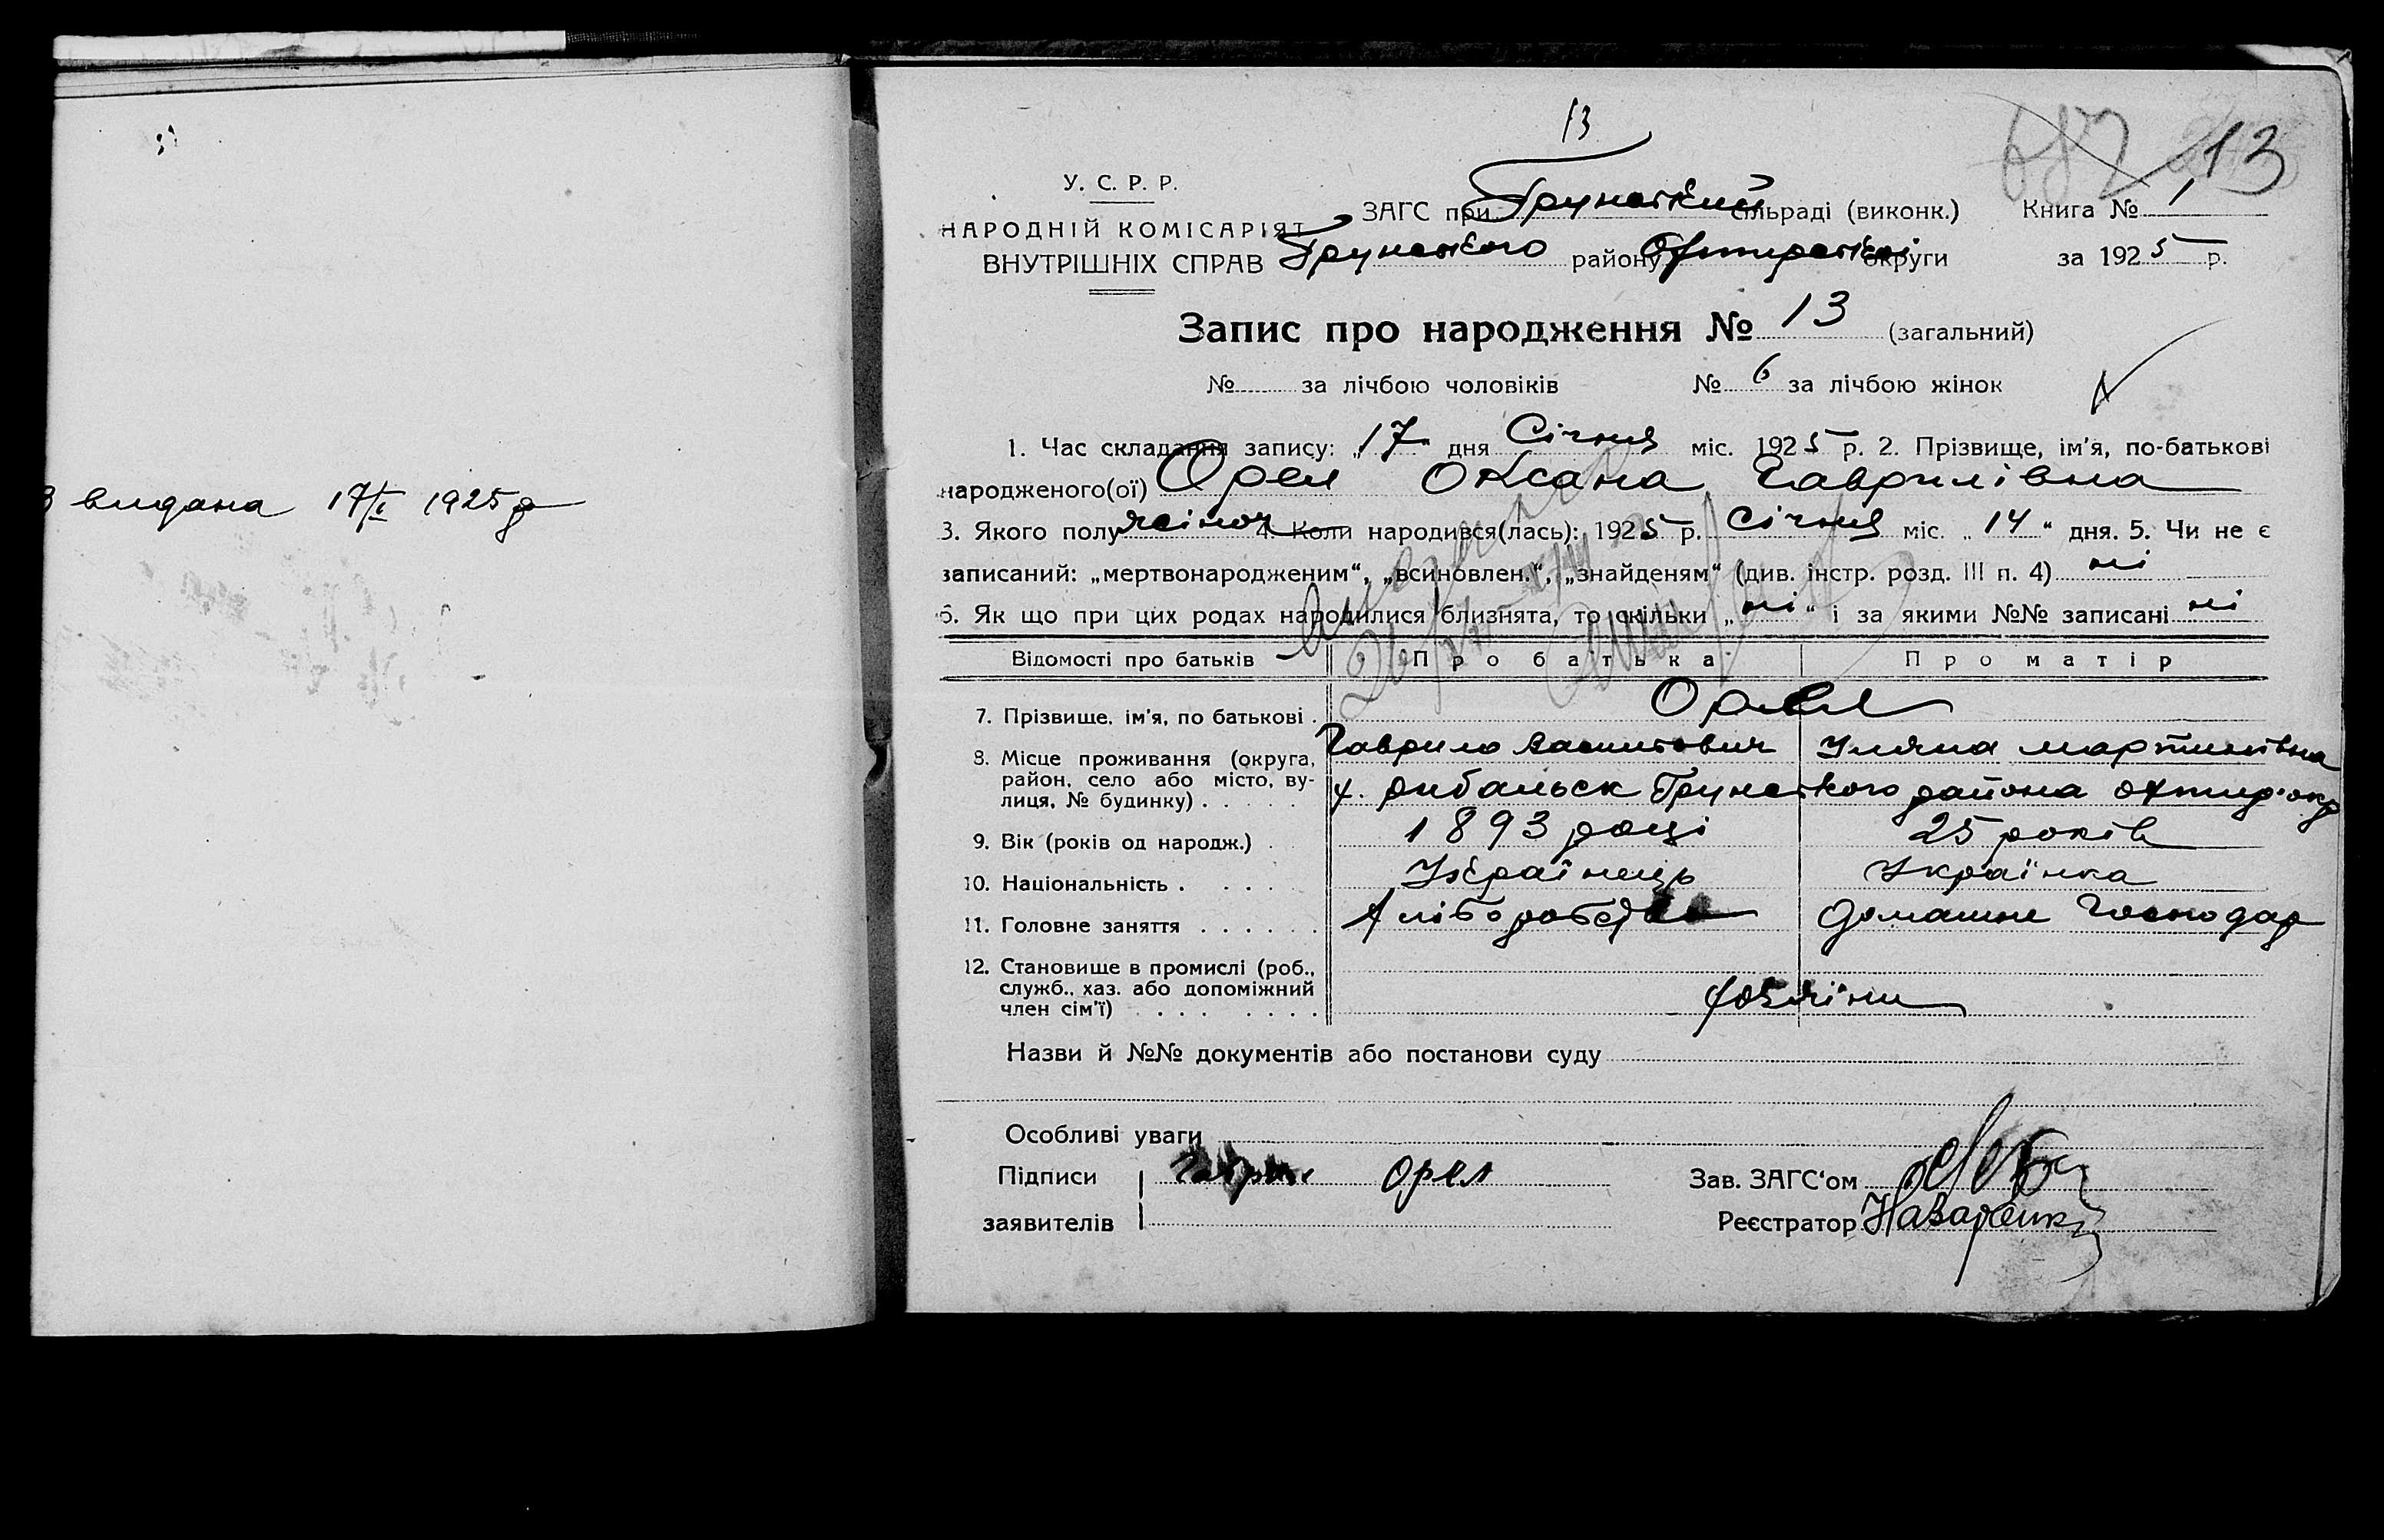 В видана 17/I 1925 р
13
13
У. С. Р. Р.
НАРОДНІЙ КОМІСАРІЯТ
ВНУТРІШНІХ СПРАВ
ЗАГС при Грунський сільраді (виконк.) Книга № 1
Грунського району Охтирської округи за 1925 р.
Запис про народження № 13 (загальний)
№ за лічбою чоловіків № 6 за лічбою жінок
1. Час складання запису: „17“ дня Січня міс. 1925 р. 2. Прізвище, ім'я, по-батькові
народженого(ої) Орел Оксана Гаврилівна
3. Якого полу жіноч 4. Коли народився(лась): 1925 р. Січня міс. „14“ дня. 5. Чи не є
записаний: „мертвонародженим“, „всиновлен.“, „знайденям“ (див. інстр. розд. III п. 4) ні
6. Як що при цих родах народилися близнята, то скільки „ні“ і за якими №№ записані ні
Відомості про батьків Про батька Про матір
7. Прізвище, ім'я, по батькові . Орел
Гаврило Василович Уляна Мартинівна
8. Місце проживання (округа,
район, село або місто, ву-
лиця, № будинку) . . . . . х. Рибальск Грунського района охтир. окр
9. Вік (років од народж.) . 1893 році 25 років
10. Національність . . . . . Українець Українка
11. Головне заняття . . . . . . Хліборобство домашнє господар
12. Становище в промислі (роб.,
служб., хаз. або допоміжний
член сім'ї) . . . . . . . . хозяіни
Назви й №№ документів або постанови суду
Особливі уваги
Підписи Орел Зав. ЗАГС'ом
заявителів Реєстратор